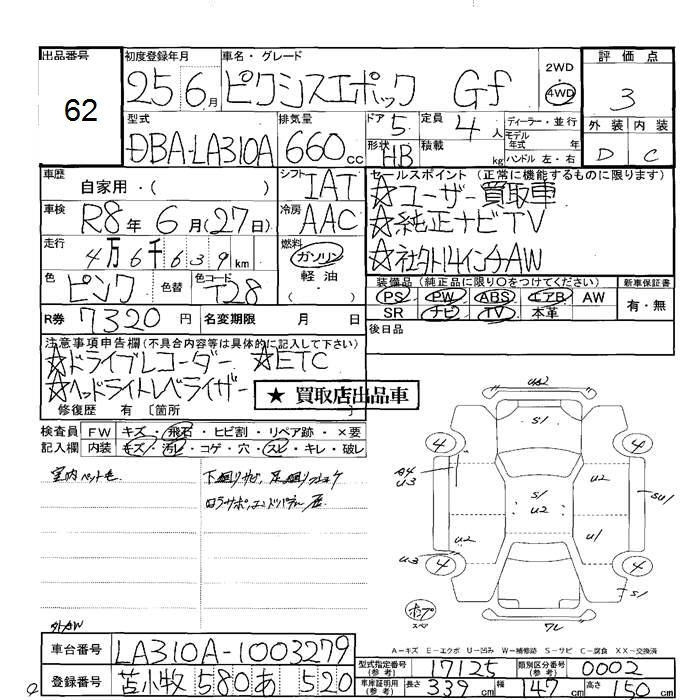 出品番号 初度登録年月 車名・グレード 2WD 評価点
62 25 6月 ピクシスエポック Gf 4WD 3
型式 排気量 ドア 定員 ディーラー・並行 外装 内装
DBA-LA310A 660cc 5 4人 モデル年式 年式 D C
形状 HB 積載 kg ハンドル 左・右
車歴 自家用・( ) シフト IAT セールスポイント (正常に機能するものに限ります)
☆ユーザー買取車
車検 R8年6月(27日) 冷房 AAC ☆純正ナビTV
走行 4万6千639km 燃料 ガソリン 軽油 ・( ) ☆社外14インチAW
色 ピンク 色替 色コード T28 装備品 (純正品に限り○をつけてください) 新車保証書
PS PW ABS エアB AW 有・無
R券 7320円 名変期限 月 日 SR ナビ TV 本革
後日品
注意事項申告欄(不具合内容等は具体的に記入して下さい)
☆ドライブレコーダー ☆ETC
☆ヘッドライトレベライザー ★ 買取店出品車
修復歴 有 〔箇所 〕
検査員 FW キズ・飛石・ヒビ割・リペア跡・×要
記入欄 内装 キズ・汚レ・コゲ・穴・スレ・キレ・破レ
室内ペット毛 下廻りサビ、足廻り
ロアサポ、エンドパネル
S/
4 4
A4
U3
S/
U2
U2
SU/
U2 U/
U3 4 4
S/
外AW
A-キズ E-エクボ U-凹み W-補修跡 S-サビ C-腐食 XX-交換済
車台番号 LA310A-1003279 型式指定番号(参考) 17125 類別区分番号(参考) 0002
登録番号 苫小牧 580 あ 520 車庫証明用(参考) 長さ 339cm 幅 147cm 高さ 150cm